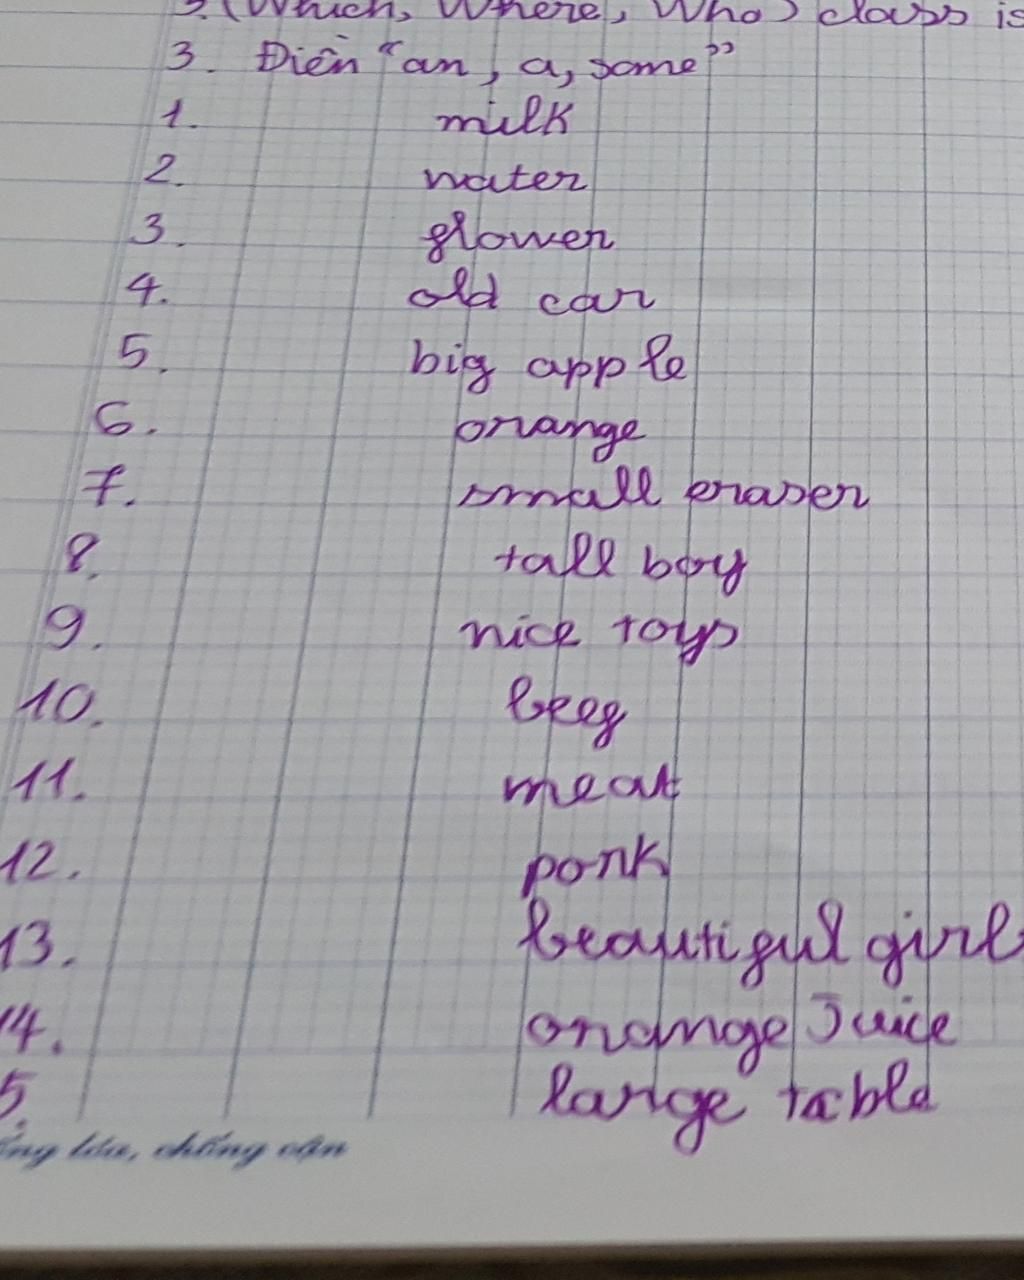 3. (Which, Where, Who) class is
3. Điền "an, a, some"
1. milk
2. water
3. flower
4. old car
5. big apple
6. orange
7. small eraser
8. tall boy
9. nice toys
10. beef
11. meat
12. pork
13. beautiful girl
14. orange Juice
5. large table
lóa, chống cận